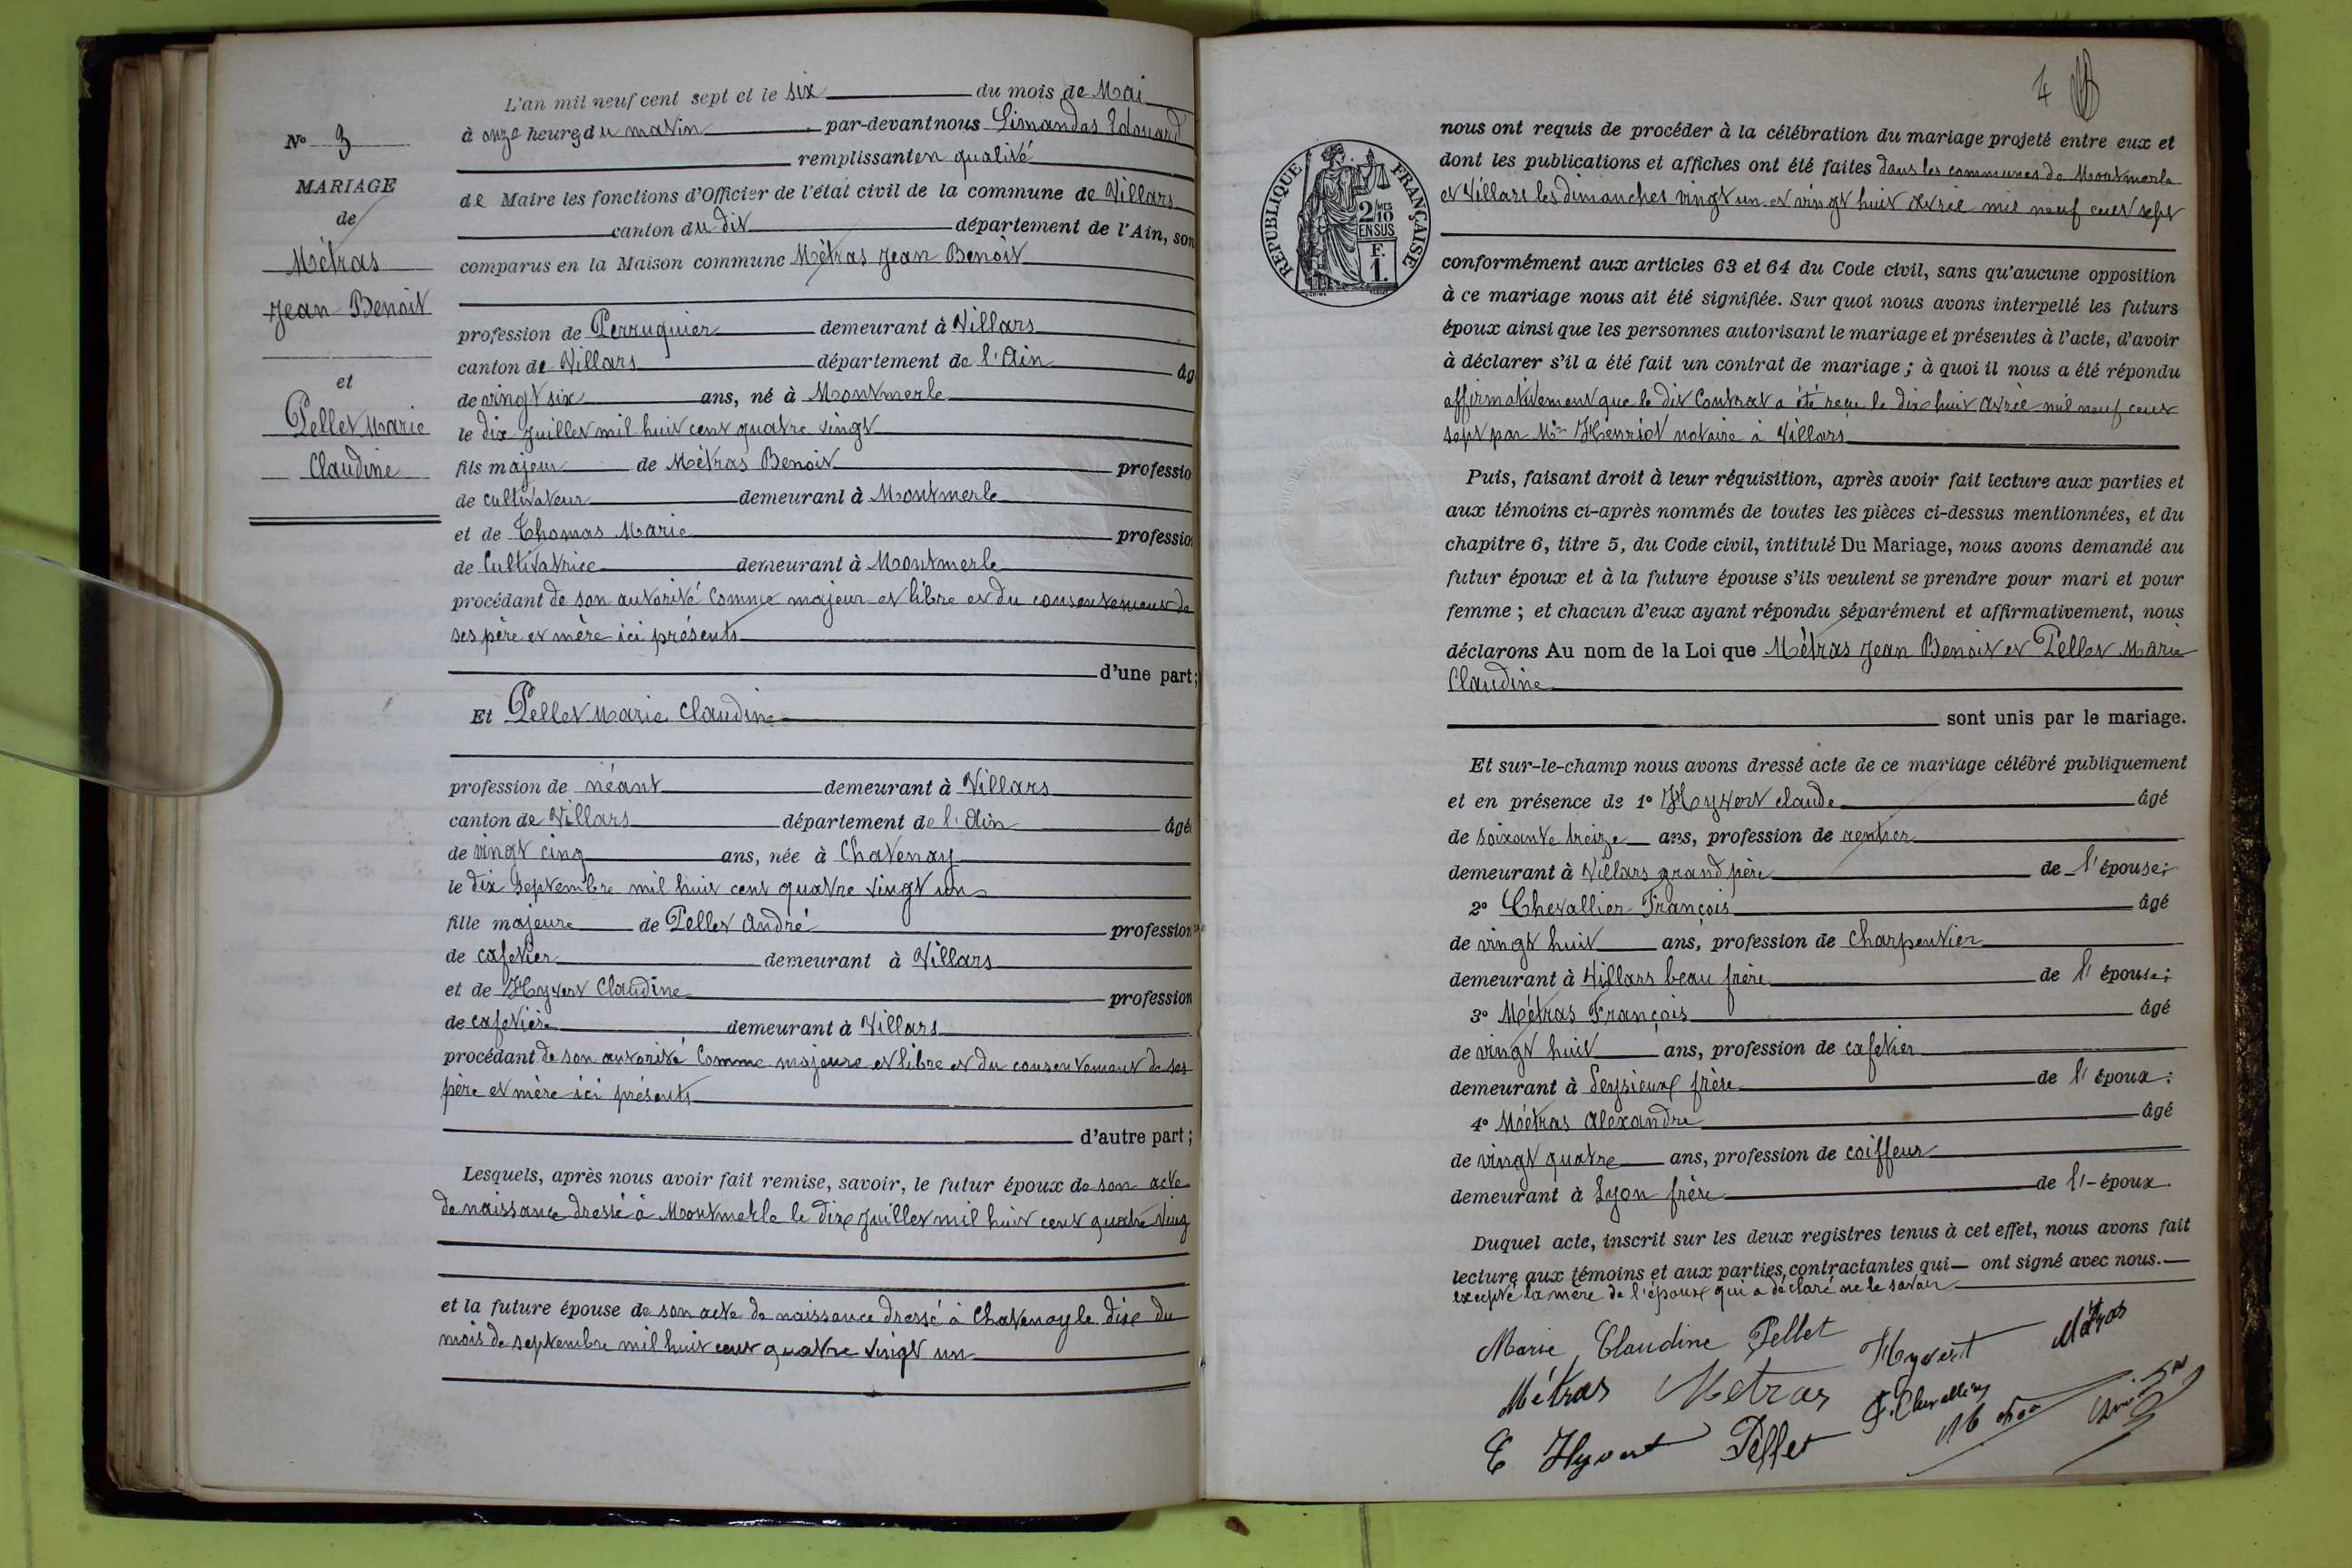 L'an mil neuf cent sept et le six du mois de Mai
à onze heures du matin par-devant nous Limandas Edouard
remplissant en qualité
de Maire les fonctions d'Officier de l'état civil de la commune de Villars
canton du dit département de l'Ain, son
comparus en la Maison commune Métras Jean Benoit
profession de Perruquier demeurant à Villars
canton de Villars département de l'Ain âg
de vingt six ans, né à Montmerle
le dix Juillet mil huit cent quatre vingt
fils majeur de Métras Benoit professio
de cultivateur demeurant à Montmerle
et de Thomas Marie profession
de Cultivatrice demeurant à Montmerle
procédant de son autorité Comme majeur et libre et du consentement de
ses père et mère ici présents
d'une part;
Et Pellet Marie Claudine
profession de néant demeurant à Villars
canton de Villars département de l'Ain âgé
de vingt cinq ans, née à Chatenay
le dix septembre mil huit cent quatre vingt un
fille majeure de Pellet André profession
de cafetier demeurant à Villars
et de Hyvert Claudine profession
de cafetière demeurant à Villars
procédant de son autorité Comme majeure et libre et du consentement de ses
père et mère ici présents
d'autre part;
Lesquels, après nous avoir fait remise, savoir, le futur époux de son acte
de naissance dressé à Montmerle le dix Juillet mil huit cent quatre ving
et la future épouse de son acte de naissance dressé à Chatenay le dix du
mois de septembre mil huit cent quatre vingt un
N° 3
MARIAGE
de
Métras
Jean Benoit
et
Pellet Marie
Claudine
4
RÉPUBLIQUE FRANÇAISE
2/10 MES
EN SUS
F.
1.
nous ont requis de procéder à la célébration du mariage projeté entre eux et
dont les publications et affiches ont été faites dans les communes de Montmerle
et Villars les dimanches vingt un et vingt huit Avril mil neuf cent sept
conformément aux articles 63 et 64 du Code civil, sans qu'aucune opposition
à ce mariage nous ait été signifiée. Sur quoi nous avons interpellé les futurs
époux ainsi que les personnes autorisant le mariage et présentes à l'acte, d'avoir
à déclarer s'il a été fait un contrat de mariage ; à quoi il nous a été répondu
affirmativement que le dit Contrat a été reçu le dix huit Avril mil neuf cent
sept par Me Henriot notaire à Villars
Puis, faisant droit à leur réquisition, après avoir fait lecture aux parties et
aux témoins ci-après nommés de toutes les pièces ci-dessus mentionnées, et du
chapitre 6, titre 5, du Code civil, intitulé Du Mariage, nous avons demandé au
futur époux et à la future épouse s'ils veulent se prendre pour mari et pour
femme ; et chacun d'eux ayant répondu séparément et affirmativement, nous
déclarons Au nom de la Loi que Métras Jean Benoit et Pellet Marie
Claudine
sont unis par le mariage.
Et sur-le-champ nous avons dressé acte de ce mariage célébré publiquement
et en présence de 1° Hyvert Claude âgé
de soixante treize ans, profession de rentier
demeurant à Villars grand père de l'épouse;
2° Chevallier François âgé
de vingt huit ans, profession de charpentier
demeurant à Villars beau frère de l'épouse;
3° Métras François âgé
de vingt huit ans, profession de cafetier
demeurant à Peysieux frère de l'époux;
4° Métras Alexandre âgé
de vingt quatre ans, profession de coiffeur
demeurant à Lyon frère de l'époux.
Duquel acte, inscrit sur les deux registres tenus à cet effet, nous avons fait
lecture aux témoins et aux parties contractantes qui ont signé avec nous.
excepté la mère de l'époux qui a déclaré ne le savoir
Marie Claudine Pellet Hyvert Métras
Métras Metras F. Chevallier
C Hyvert Pellet